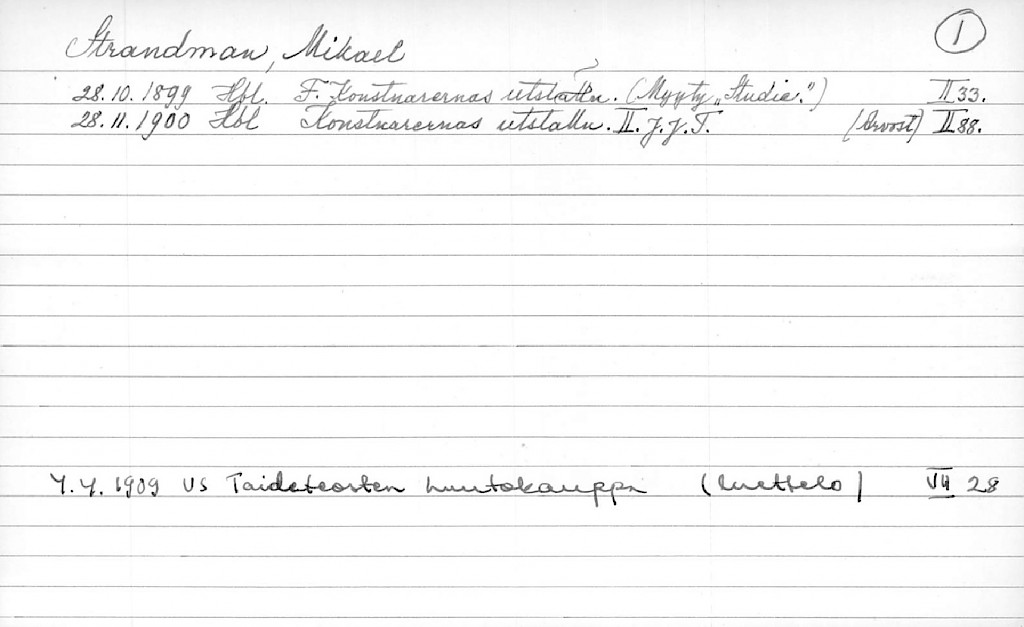 Strandman, Mikael 1
28.10.1899 Hbl. F. Konstnärernas utställn. (Myyty „Studie.") II 33.
28.11.1900 Hbl Konstnärernas utställn. II. J.J.T. (Arvost) II 88.
4.4.1909 US Taideteosten huutokauppa (luettelo) VII 28